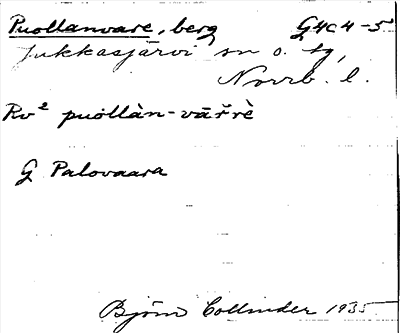 Puollanvare, berg G4c4-5
Jukkasjärvi sn o. tg,
Norrb. l.
Rv² puöllàn-vāřrè
G Palovaara
Björn Collinder 1935